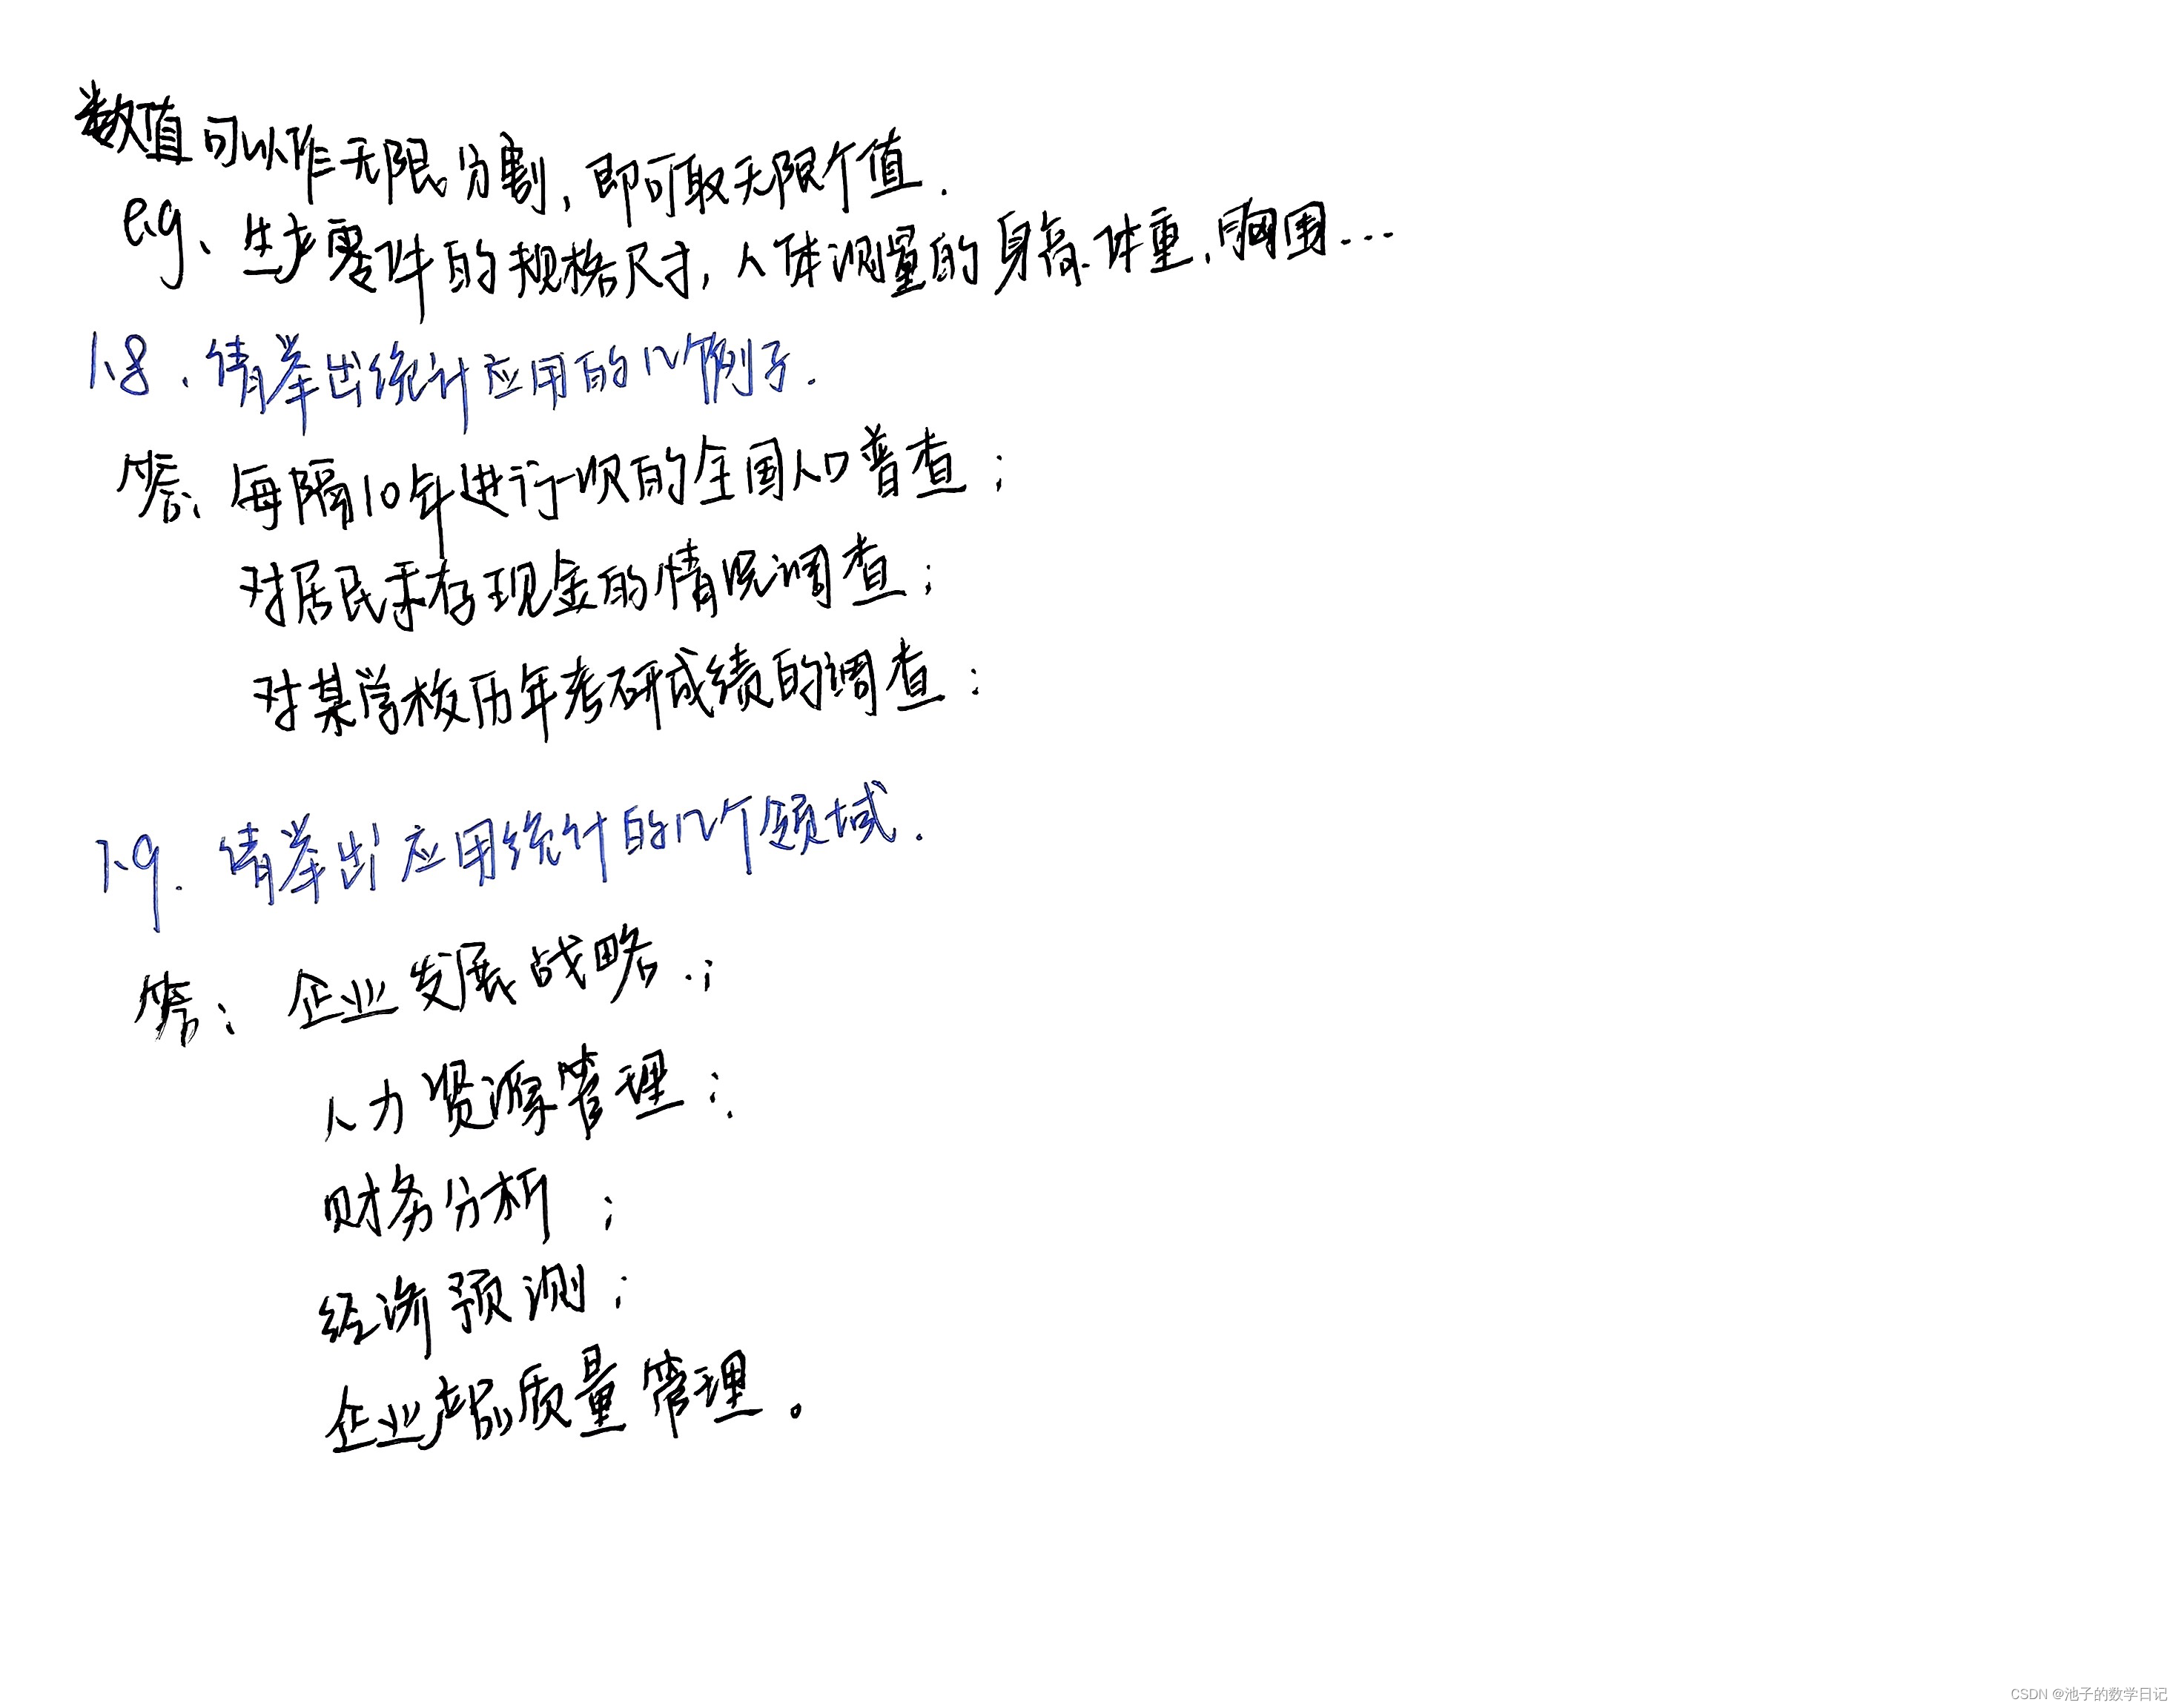 数值可以作无限分割,即可取无限个值.
e.g、生产零件的规格尺寸,人体测量的身高.体重,胸围...
1.8.请举出统计应用的几个例子.
答:每隔10年进行一次的全国人口普查;
对居民手存现金的情况调查;
对某学校历年考研成绩的调查:
1.9.请举出应用统计的几个领域.
答:企业发展战略.;
人力资源管理;.
财务分析;
经济预测;
企业产品质量管理。
CSDN @池子的数学日记